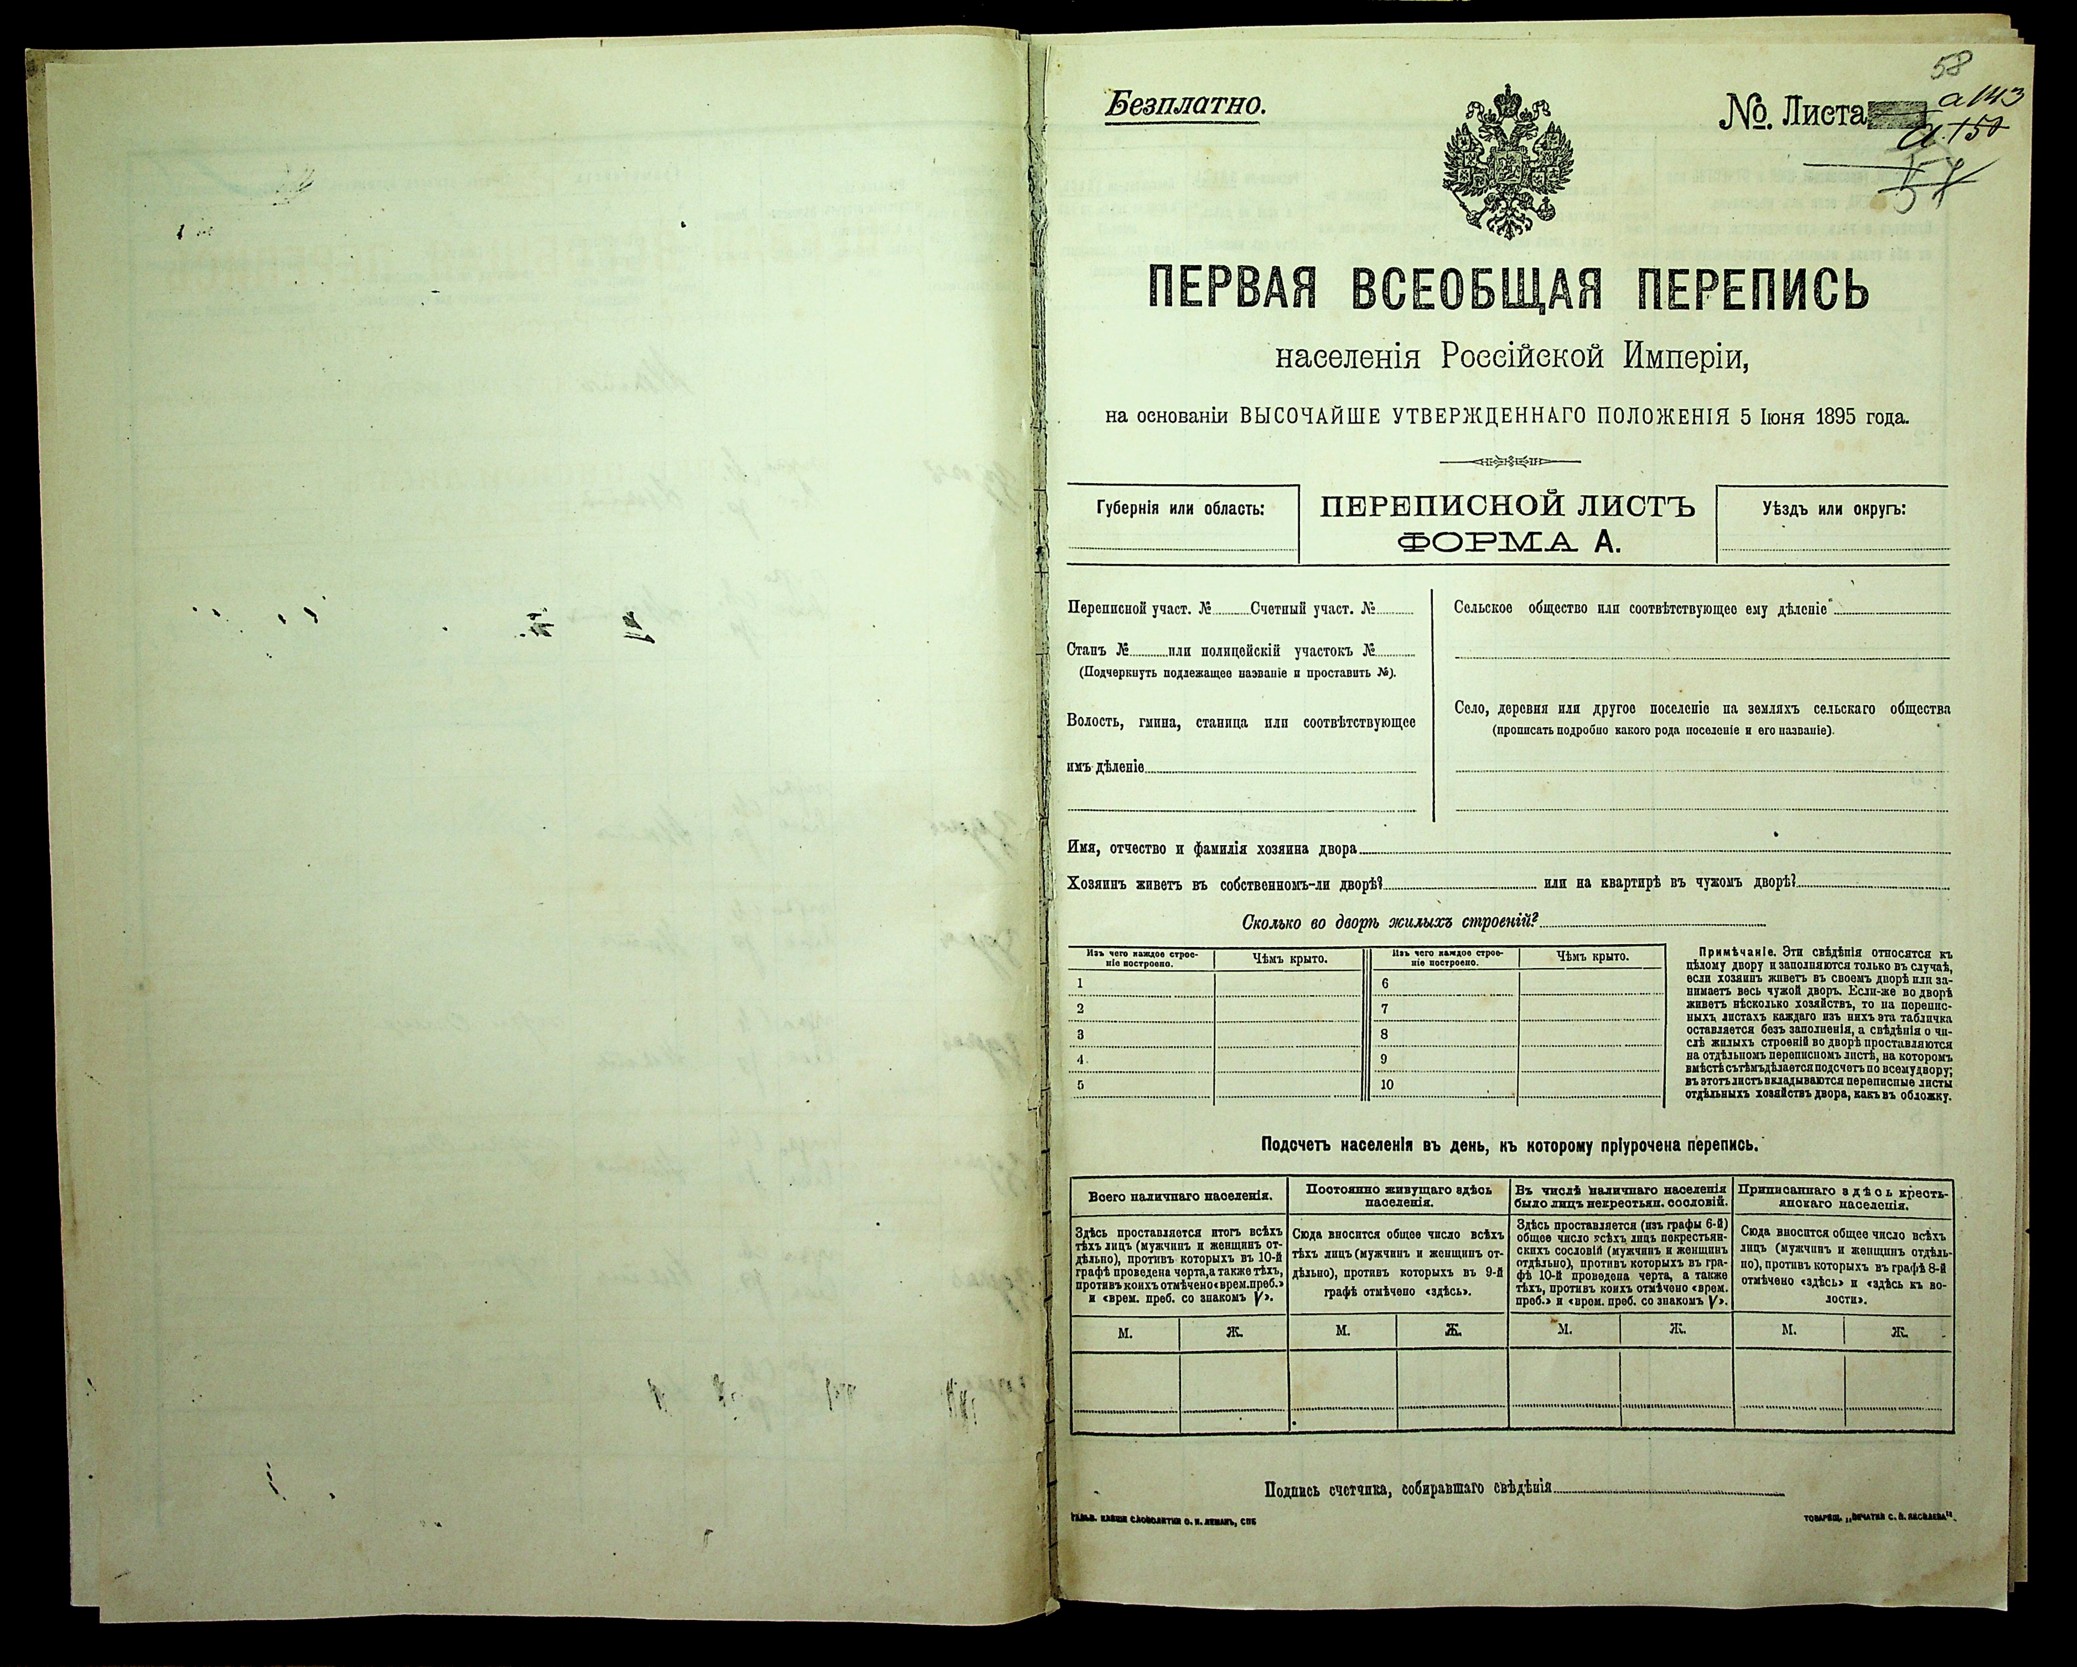 58
Безплатно.
№. Листа
a 143
a 150
57
ПЕРВАЯ ВСЕОБЩАЯ ПЕРЕПИСЬ
населенія Россійской Имперіи,
на основаніи ВЫСОЧАЙШЕ УТВЕРЖДЕННАГО ПОЛОЖЕНІЯ 5 Іюня 1895 года.
Губернія или область:
ПЕРЕПИСНОЙ ЛИСТЪ
ФОРМА А.
Уѣздъ или округъ:
Переписной участ. № Счетный участ. №
Станъ № или полицейскій участокъ №
(Подчеркнуть подлежащее названіе и проставить №).
Волость, гмина, станица или соотвѣтствующее
имъ дѣленіе
Сельское общество или соотвѣтствующее ему дѣленіе
Село, деревня или другое поселеніе на земляхъ сельскаго общества
(прописать подробно какого рода поселеніе и его названіе).
Имя, отчество и фамилія хозяина двора
Хозяинъ живетъ въ собственномъ-ли дворѣ? или на квартирѣ въ чужомъ дворѣ?
Сколько во дворѣ жилыхъ строеній?
Изъ чего каждое строе-
ніе построено.
Чѣмъ крыто.
Изъ чего каждое строе-
ніе построено.
Чѣмъ крыто.
1
6
2
7
3
8
4
9
5
10
Примѣчаніе. Эти свѣдѣнія относятся къ
цѣлому двору и заполняются только въ случаѣ,
если хозяинъ живетъ въ своемъ дворѣ или за-
нимаетъ весь чужой дворъ. Если-же во дворѣ
живетъ нѣсколько хозяйствъ, то на перепис-
ныхъ листахъ каждаго изъ нихъ эта табличка
оставляется безъ заполненія, а свѣдѣнія о чи-
слѣ жилыхъ строеній во дворѣ проставляются
на отдѣльномъ переписномъ листѣ, на которомъ
вмѣстѣ съ тѣмъ дѣлается подсчетъ по всему двору;
въ этотъ листъ вкладываются переписные листы
отдѣльныхъ хозяйствъ двора, какъ въ обложку.
Подсчетъ населенія въ день, къ которому пріурочена перепись.
Всего наличнаго населенія.
Здѣсь проставляется итогъ всѣхъ
тѣхъ лицъ (мужчинъ и женщинъ от-
дѣльно), противъ которыхъ въ 10-й
графѣ проведена черта, а также тѣхъ,
противъ коихъ отмѣчено «врем. преб.»
и «врем. преб. со знакомъ V».
Постоянно живущаго здѣсь
населенія.
Сюда вносится общее число всѣхъ
тѣхъ лицъ (мужчинъ и женщинъ от-
дѣльно), противъ которыхъ въ 9-й
графѣ отмѣчено «здѣсь».
Въ числѣ наличнаго населенія
было лицъ некрестьян. сословій.
Здѣсь проставляется (изъ графы 6-й)
общее число всѣхъ лицъ некрестьян-
скихъ сословій (мужчинъ и женщинъ
отдѣльно), противъ которыхъ въ гра-
фѣ 10-й проведена черта, а также
тѣхъ, противъ коихъ отмѣчено «врем.
преб.» и «врем. преб. со знакомъ V».
Приписаннаго здѣсь кресть-
янскаго населенія.
Сюда вносится общее число всѣхъ
лицъ (мужчинъ и женщинъ отдѣль-
но), противъ которыхъ въ графѣ 8-й
отмѣчено «здѣсь» и «здѣсь къ во-
лости».
М. Ж. М. Ж. М. Ж. М. Ж.
Подпись счетчика, собиравшаго свѣдѣнія
О. И. ЛЕМАНЪ, СПБ
ТОВАРИЩ. „ПЕЧАТНЯ С. П. ЯКОВЛЕВА".